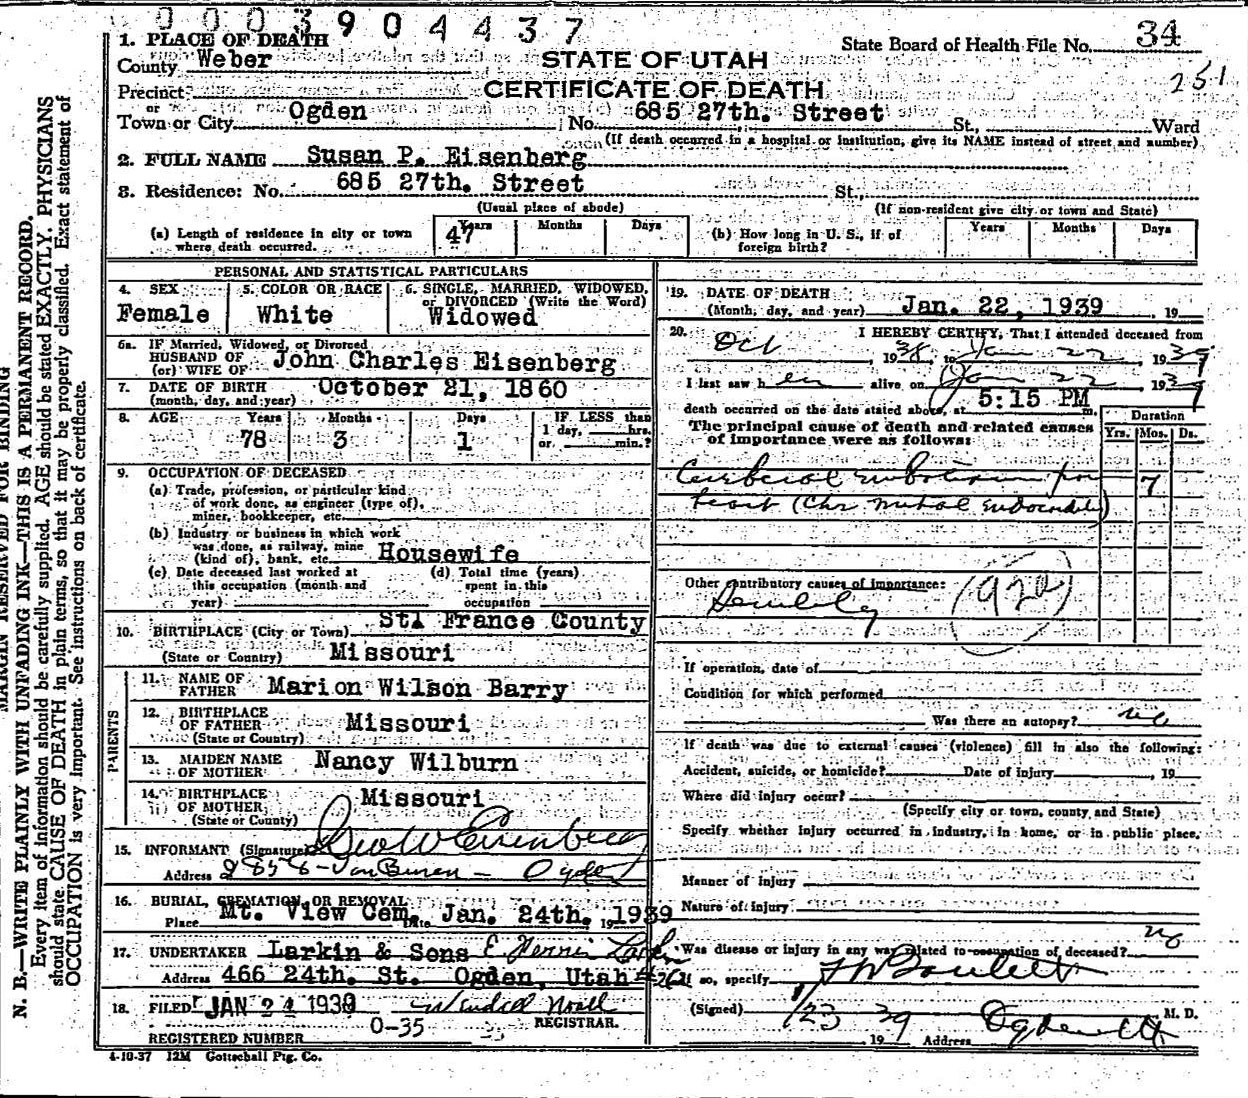 0003904437
1. PLACE OF DEATH
State Board of Health File No. 34
County Weber
STATE OF UTAH
251
Precinct
CERTIFICATE OF DEATH
or
Town or City Ogden No. 685 27th. Street St., Ward
(If death occurred in a hospital or institution, give its NAME instead of street and number)
2. FULL NAME Susan P. Eisenberg
3. Residence: No. 685 27th. Street St.,
(Usual place of abode) (If non-resident give city or town and State)
(a) Length of residence in city or town where death occurred. 47 Years Months Days
(b) How long in U. S., if of foreign birth? Years Months Days
PERSONAL AND STATISTICAL PARTICULARS
4. SEX Female
5. COLOR OR RACE White
6. SINGLE, MARRIED, WIDOWED, or DIVORCED (Write the Word) Widowed
6a. IF Married, Widowed, or Divorced
HUSBAND OF
(or) WIFE OF John Charles Eisenberg
7. DATE OF BIRTH October 21, 1860
(month, day, and year)
8. AGE Years 78 Months 3 Days 1 IF LESS than 1 day, hrs. or min.?
9. OCCUPATION OF DECEASED
(a) Trade, profession, or particular kind
of work done, as engineer (type of),
miner, bookkeeper, etc.
(b) Industry or business in which work
was done, as railway, mine
(kind of), bank, etc. Housewife
(c) Date deceased last worked at
this occupation (month and
year)
(d) Total time (years)
spent in this
occupation
10. BIRTHPLACE (City or Town) Stl France County
(State or Country) Missouri
PARENTS
11. NAME OF FATHER Marion Wilson Barry
12. BIRTHPLACE OF FATHER Missouri
(State or Country)
13. MAIDEN NAME OF MOTHER Nancy Wilburn
14. BIRTHPLACE OF MOTHER Missouri
(State or Country)
15. INFORMANT (Signature) Geo W Eisenberg
Address 2858 - Van Buren - Ogden
16. BURIAL, CREMATION, OR REMOVAL
Place Mt. View Cem. Date Jan. 24th. 19 1939
17. UNDERTAKER Larkin & Sons E. Larkin
Address 466 24th. St. Ogden, Utah
18. FILED JAN 24 1939 Wendell Noall
REGISTRAR.
0-35
REGISTERED NUMBER 33
4-10-37 12M Gottschall Ptg. Co.
19. DATE OF DEATH
(Month, day, and year) Jan. 22, 1939, 19
20. I HEREBY CERTIFY, That I attended deceased from
Oct 1938, to Jan 22 1939
I last saw her alive on Jan 22 1939
death occurred on the date stated above, at 5:15 PM m.
The principal cause of death and related causes
of importance were as follows:
Duration
Yrs. Mos. Ds.
Cerebral embolism from 7
heart (Chr mitral endocarditis)
Other contributory causes of importance:
Senility (92a)
If operation, date of
Condition for which performed
Was there an autopsy? no
If death was due to external causes (violence) fill in also the following:
Accident, suicide, or homicide? Date of injury, 19
Where did injury occur?
(Specify city or town, county and State)
Specify whether injury occurred in industry, in home, or in public place.
Manner of injury
Nature of injury
Was disease or injury in any way related to occupation of deceased? no
If so, specify
(Signed) M. D.
1/23 39 19 Address Ogden Ut
MARGIN RESERVED FOR BINDING
N. B.—WRITE PLAINLY WITH UNFADING INK—THIS IS A PERMANENT RECORD.
Every item of information should be carefully supplied. AGE should be stated EXACTLY. PHYSICIANS
should state CAUSE OF DEATH in plain terms, so that it may be properly classified. Exact statement of
OCCUPATION is very important. See instructions on back of certificate.